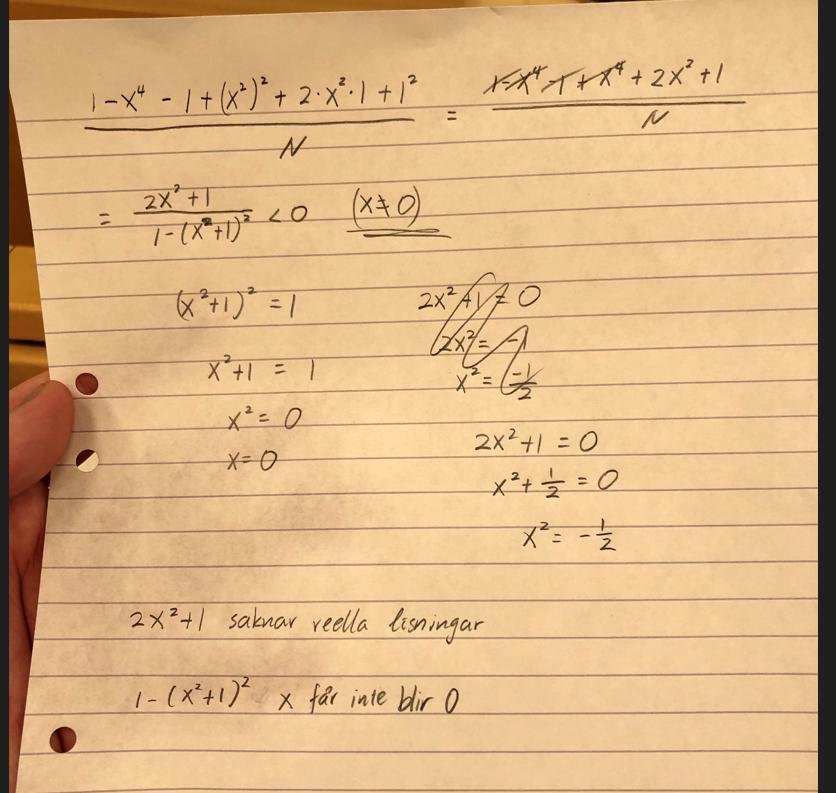 1-x⁴ - 1+(x²)² + 2·x²·1 + 1² / N = 1-x⁴ -1+x⁴ + 2x²+1 / N
= 2x²+1 / 1-(x²+1)² < 0 (x≠0)
(x²+1)² = 1
x²+1 = 1
x² = 0
x=0
2x²+1 = 0
2x² = -1
x² = -1/2
2x²+1 = 0
x²+ 1/2 = 0
x² = -1/2
2x²+1 saknar reella lisningar
1-(x²+1)² x får inte blir 0